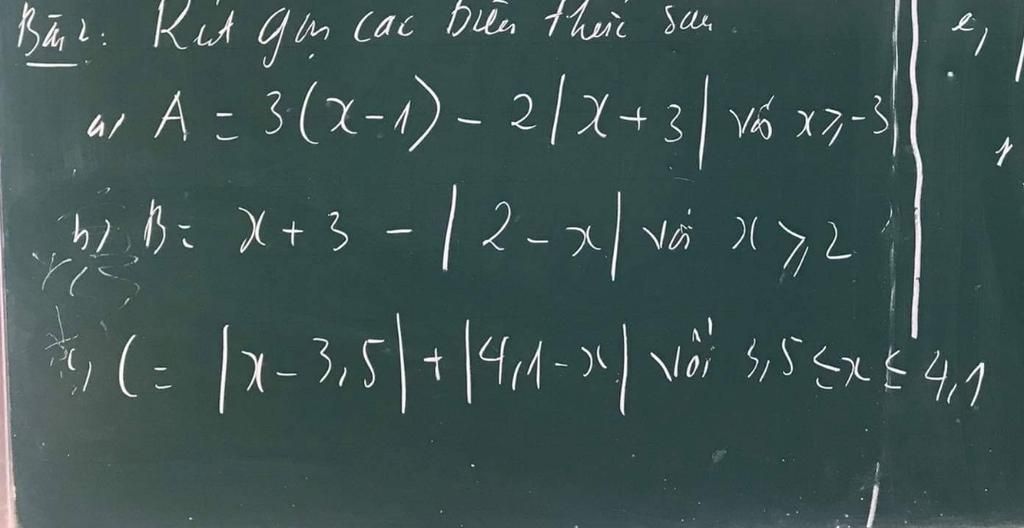 Bài 2: Rút gọn các biểu thức sau
a, A = 3(x-1) - 2|x+3| với x ≥ -3
b, B = x + 3 - |2 - x| với x ≥ 2
c, C = |x - 3,5| + |4,1 - x| với 3,5 ≤ x ≤ 4,1
e,